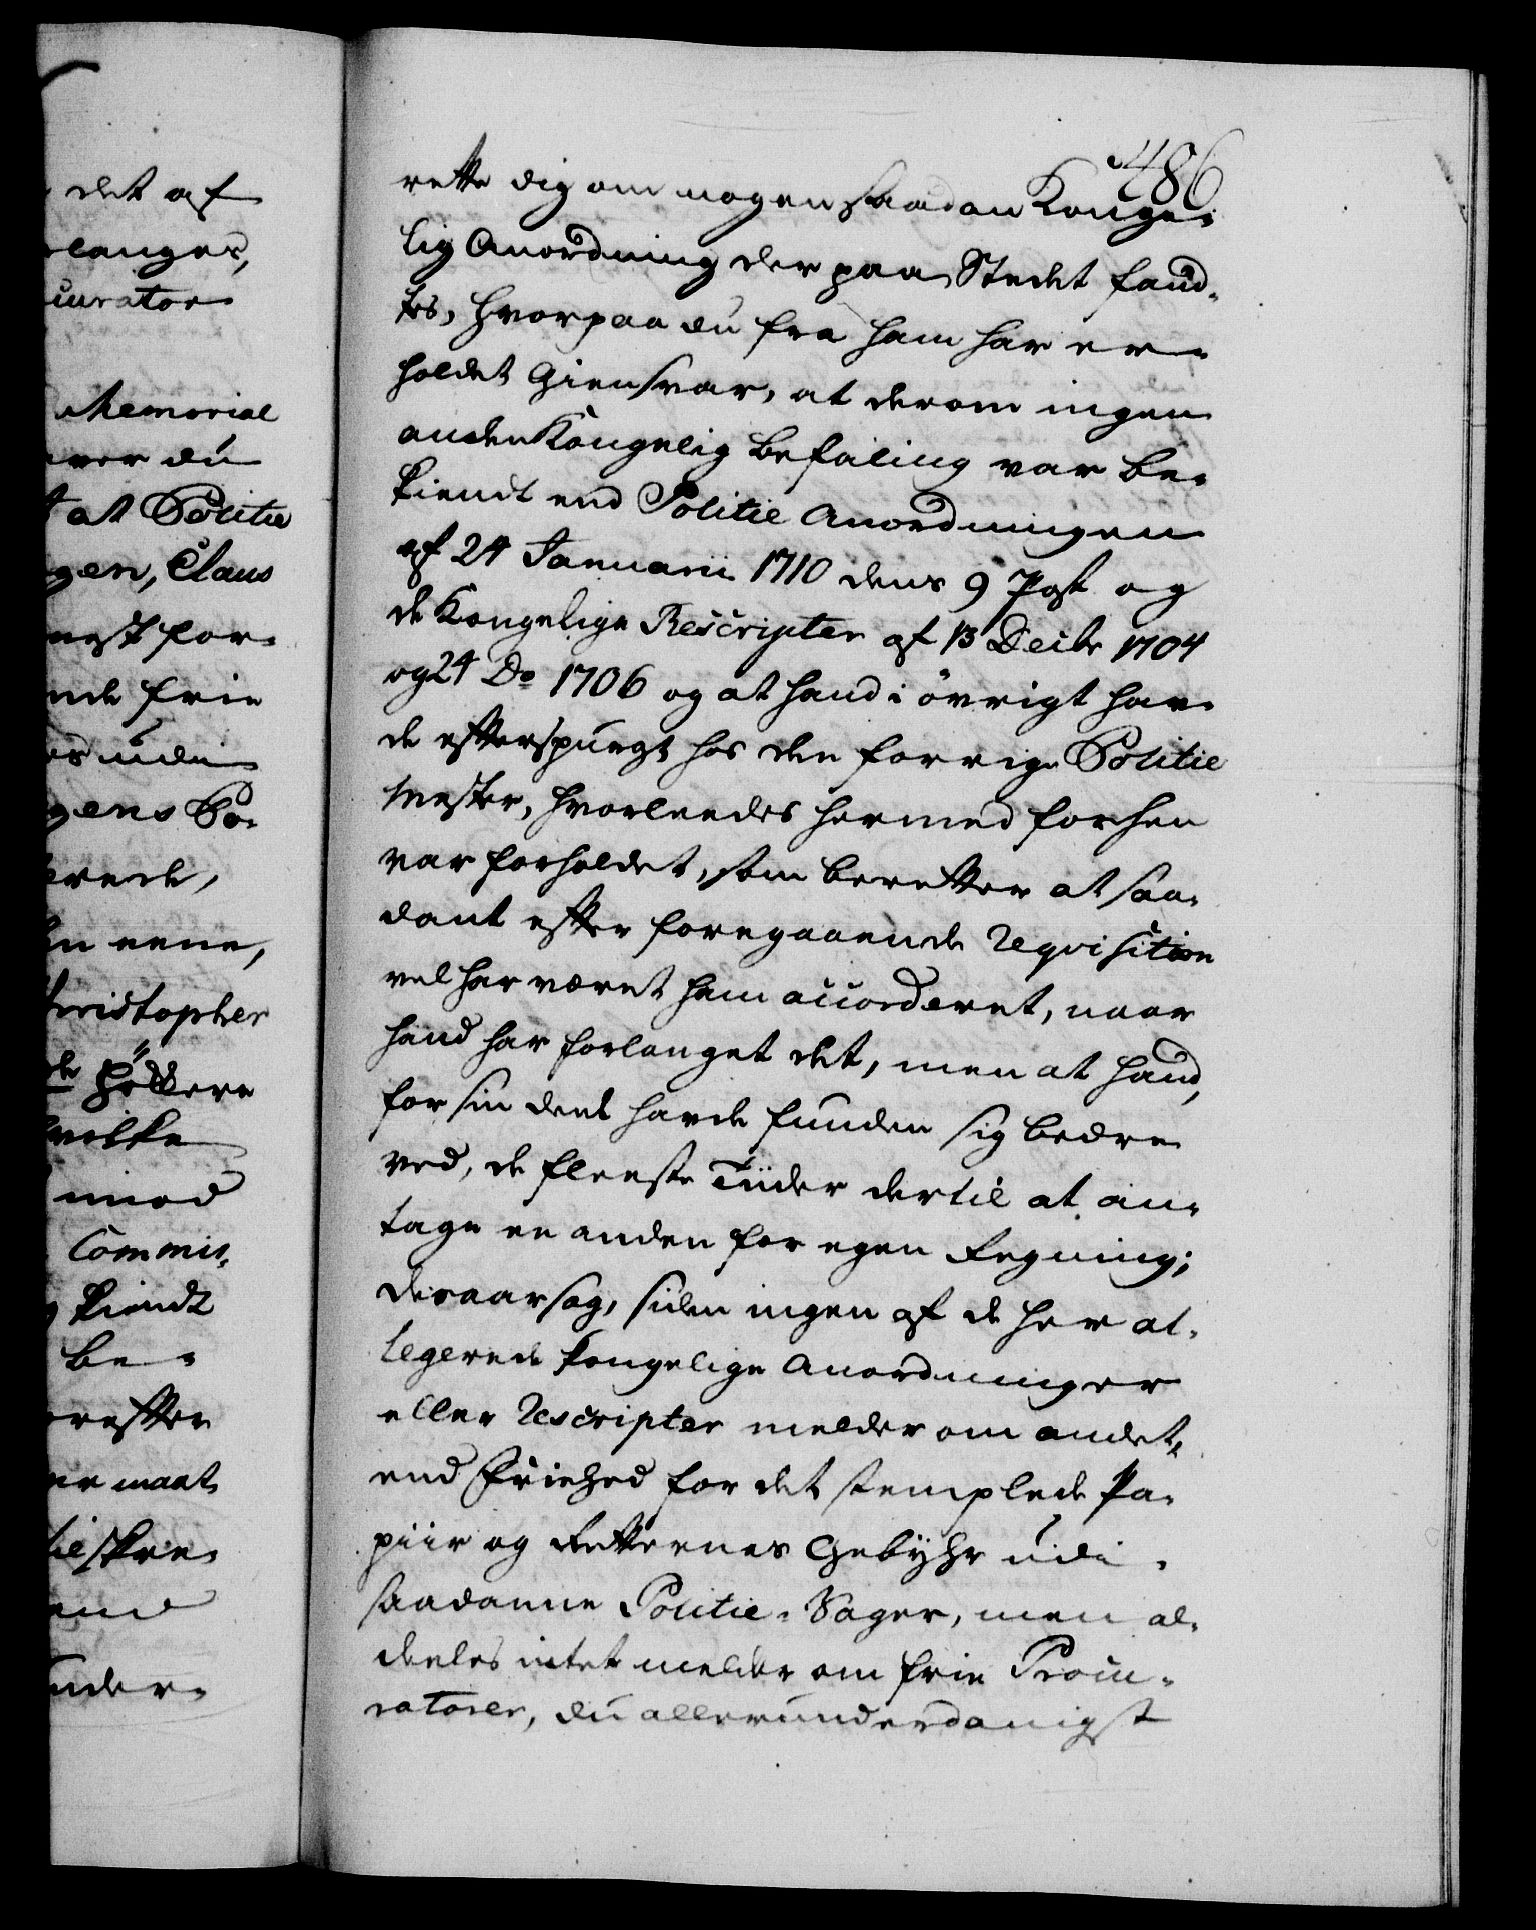 det af
langer,
curator
Memorial
ver du
at Politie
gen, Claus
nest for-
nde frie
es uden
gens Po-
erede,
en eene,
Christopher
de Høckere
hvilke
imod
Commis-
kiendt
be-
refter
er maat
til skre-
under-
486
rette dig om nogen saadan Konge-
lig Anordning der paa Stedet fand-
tes, hvorpaa du fra ham har er-
holdet Giensvar, at derom ingen
anden Kongelig Befaling var be-
kiendt end Politie Anordningen
af 24 Januarii 1710 dens 9 Post og
de Kongelige Rescripter af 13 Decbr 1704
og 24 Do 1706 og at hand i øvrigt hav-
de efterspurgt hos den forrige Politie
Mester, hvorleedes hermed forhen
var forholdet, som beretter at saa-
dant efter foregaaende Reqvisition
vel har været ham accorderet, naar
hand har forlanget det, men at hand,
for sin deel havde funden sig bedre
ved, de fleeste Tiider dertil at an-
tage en anden for egen Regning;
Desaarsag, siden ingen af de her al-
legerede kongelige Anordninger
eller Rescripter melder om andet,
end Friehed for det stemplede Pa-
piir og Retternes Gebyhr udi
saadanne Politie-Sager, men al-
deeles intet melder om frie Procu-
ratorer, du allerunderdanigst